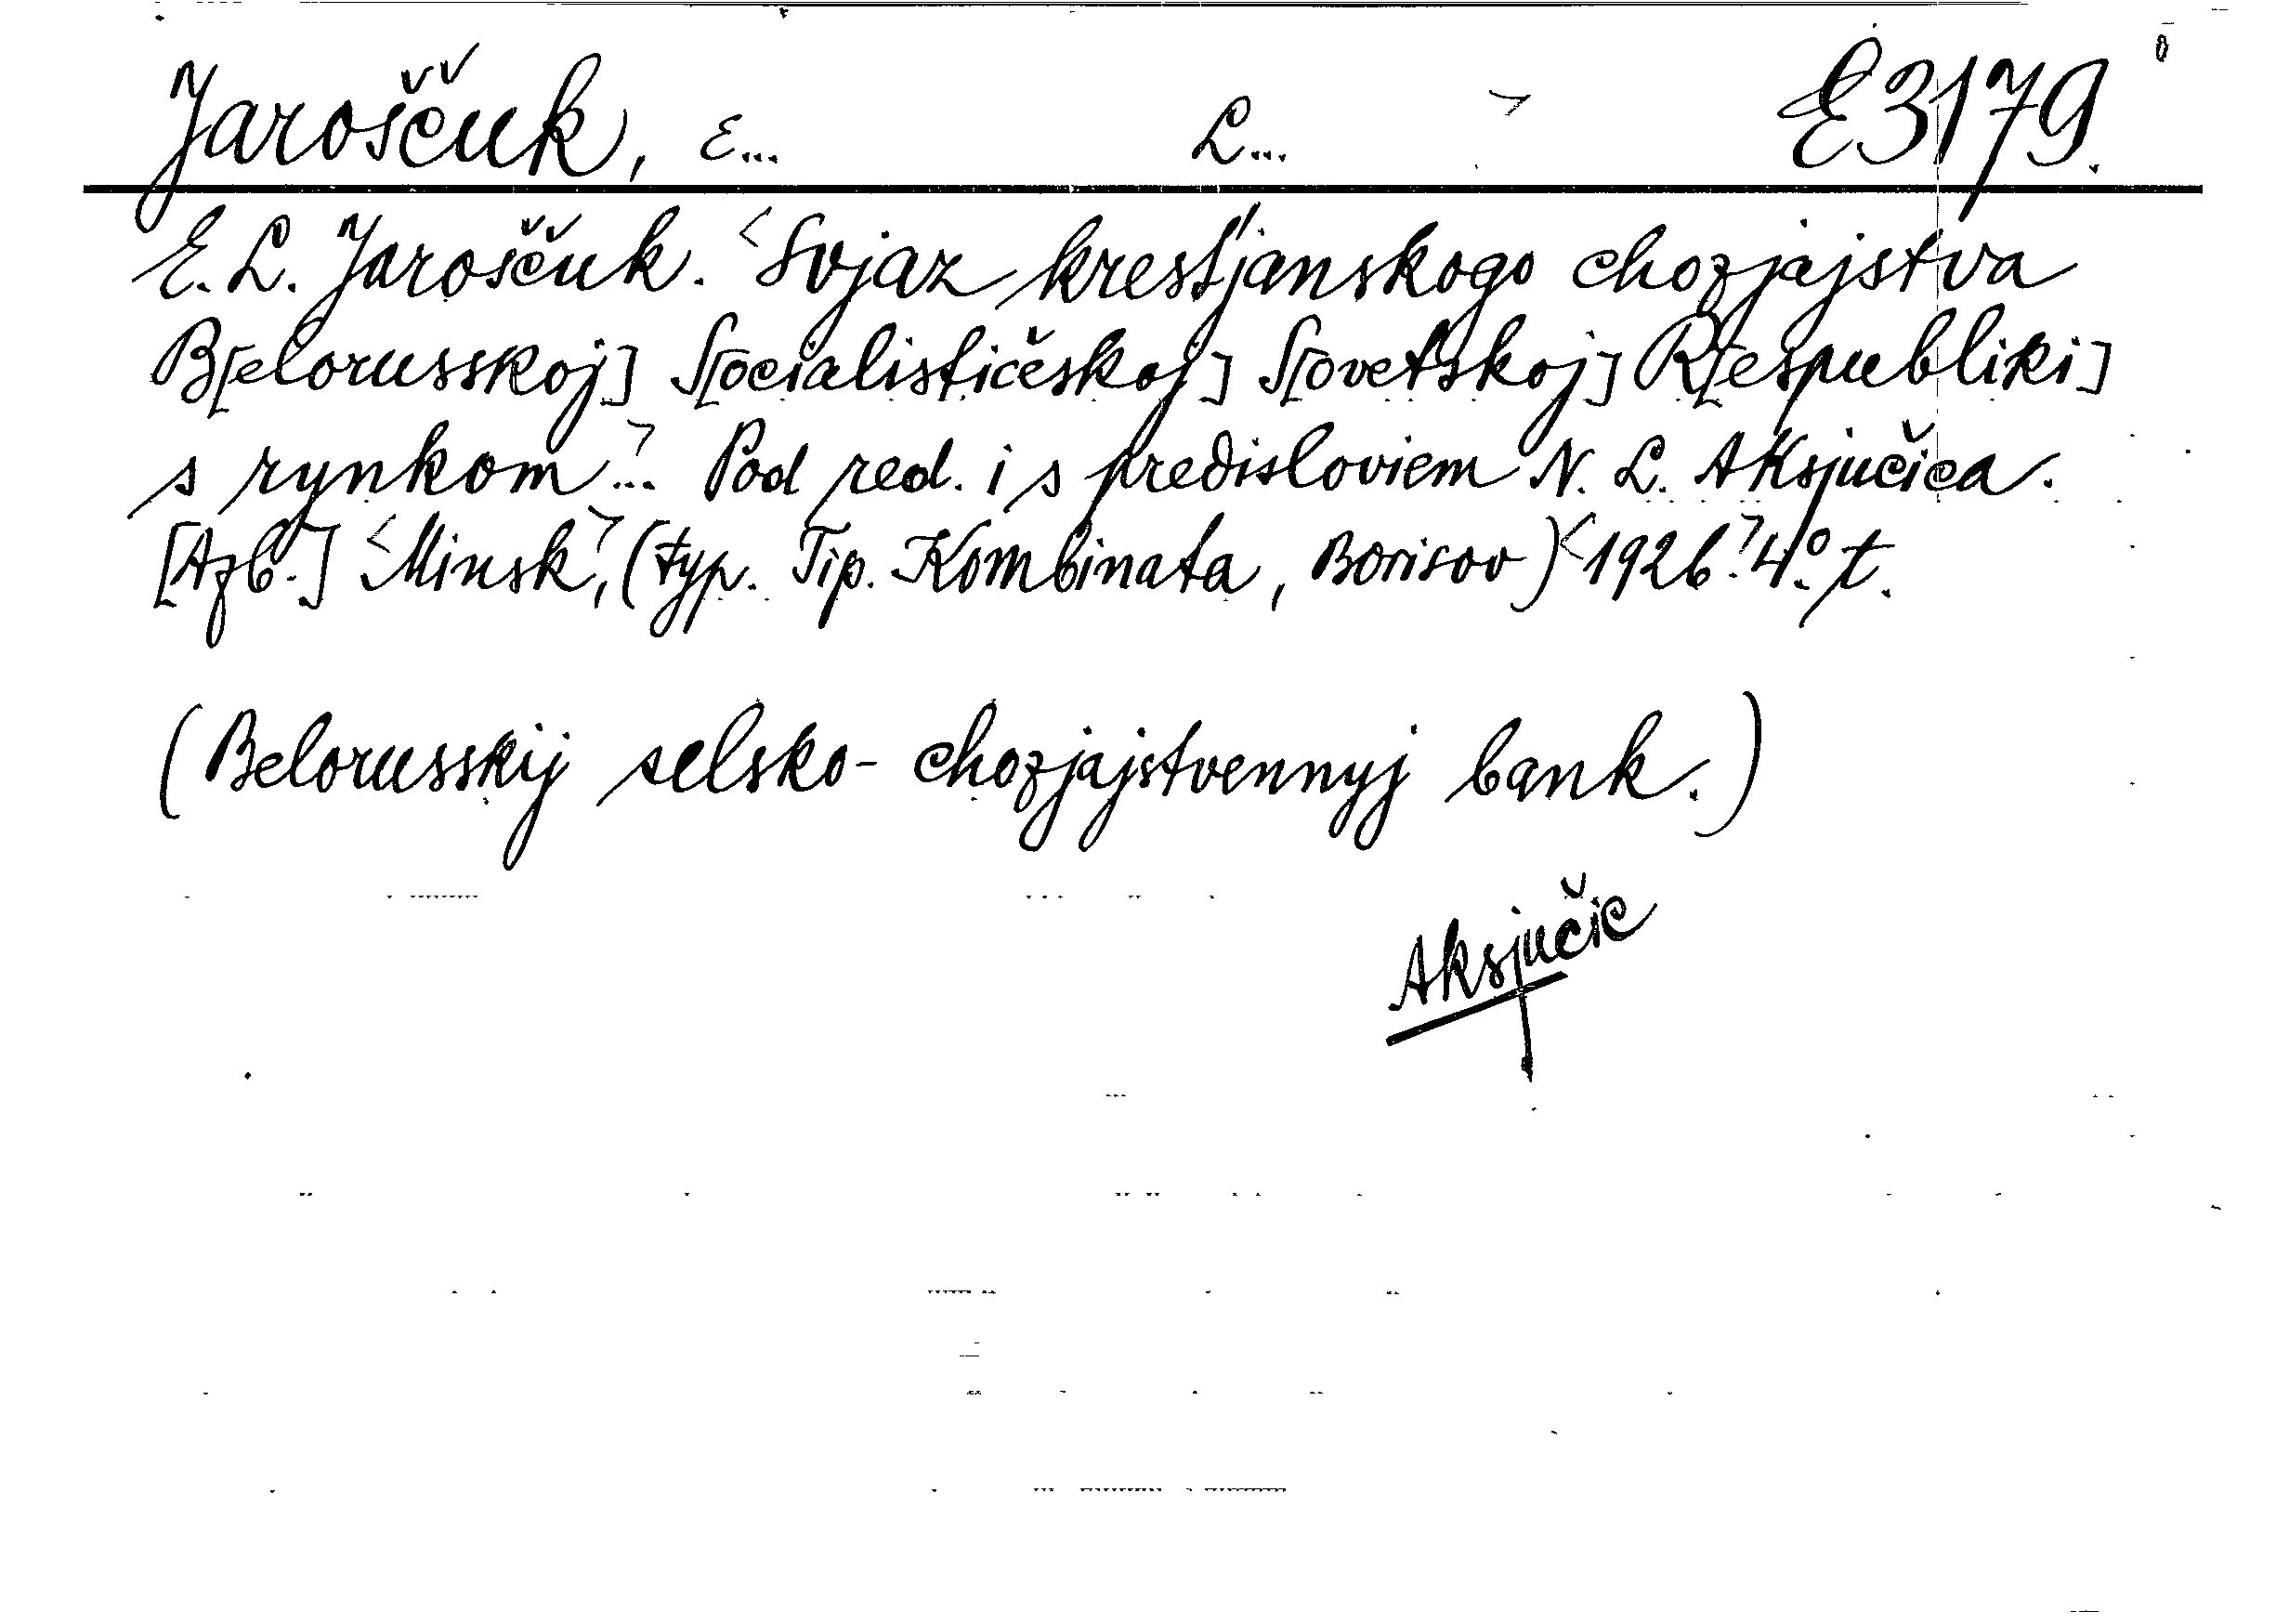 Jaroščuk, E... L... > E3179.
E. L. Jaroščuk. <Svjaz krest'janskogo chozjajstva
B[elorusskoj] S[ocialističeskoj] S[ovetskoj] R[espubliki]
s rynkom>... Pod red. i s predisloviem N. L. Aksjučica.
[Azb.] <Minsk>, (typ. Tip. Kombinata, Borisov) <1926.> 4.° t.
(Belorusskij selsko-chozjajstvennyj bank.)
Aksjučic